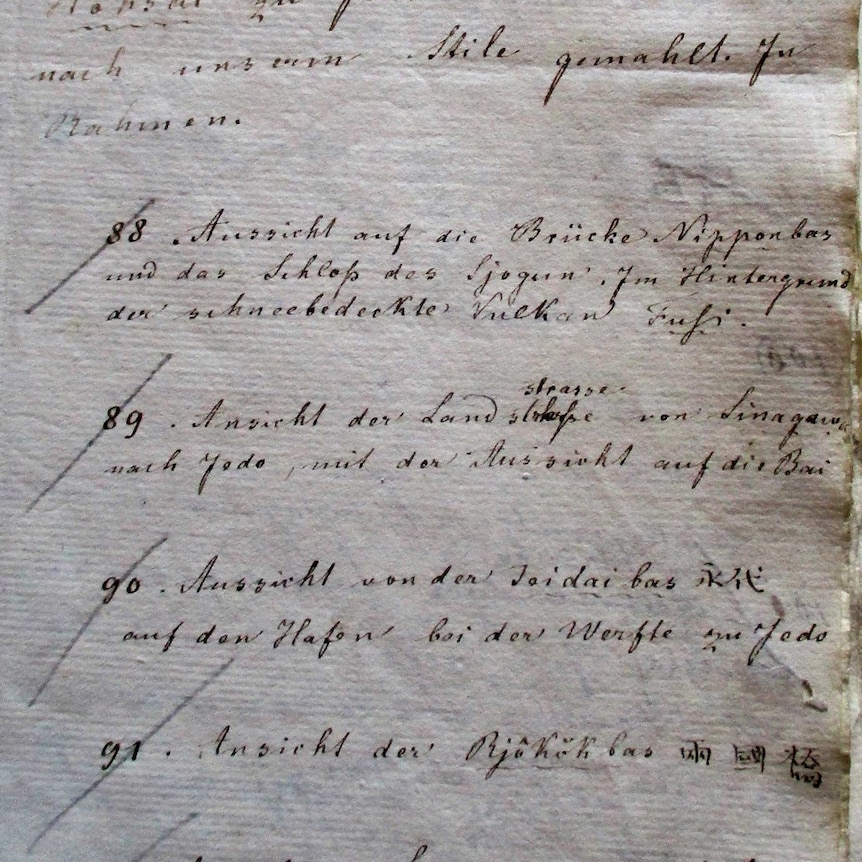 nach unserm Stile gemahlt. In
Rahmen.
88. Aussicht auf die Brücke Nipponbas
und das Schloß des Sjogun. Im Hintergrund
der schneebedeckte Vulkan Fusi.
strasse
89. Ansicht der Land von Sinagawa
nach Jedo, mit der Aussicht auf die Bai
90. Aussicht von der Jeidai bas 永代
auf den Hafen bei der Werfte zu Jedo
91. Ansicht der Rjôkôk bas 兩國橋